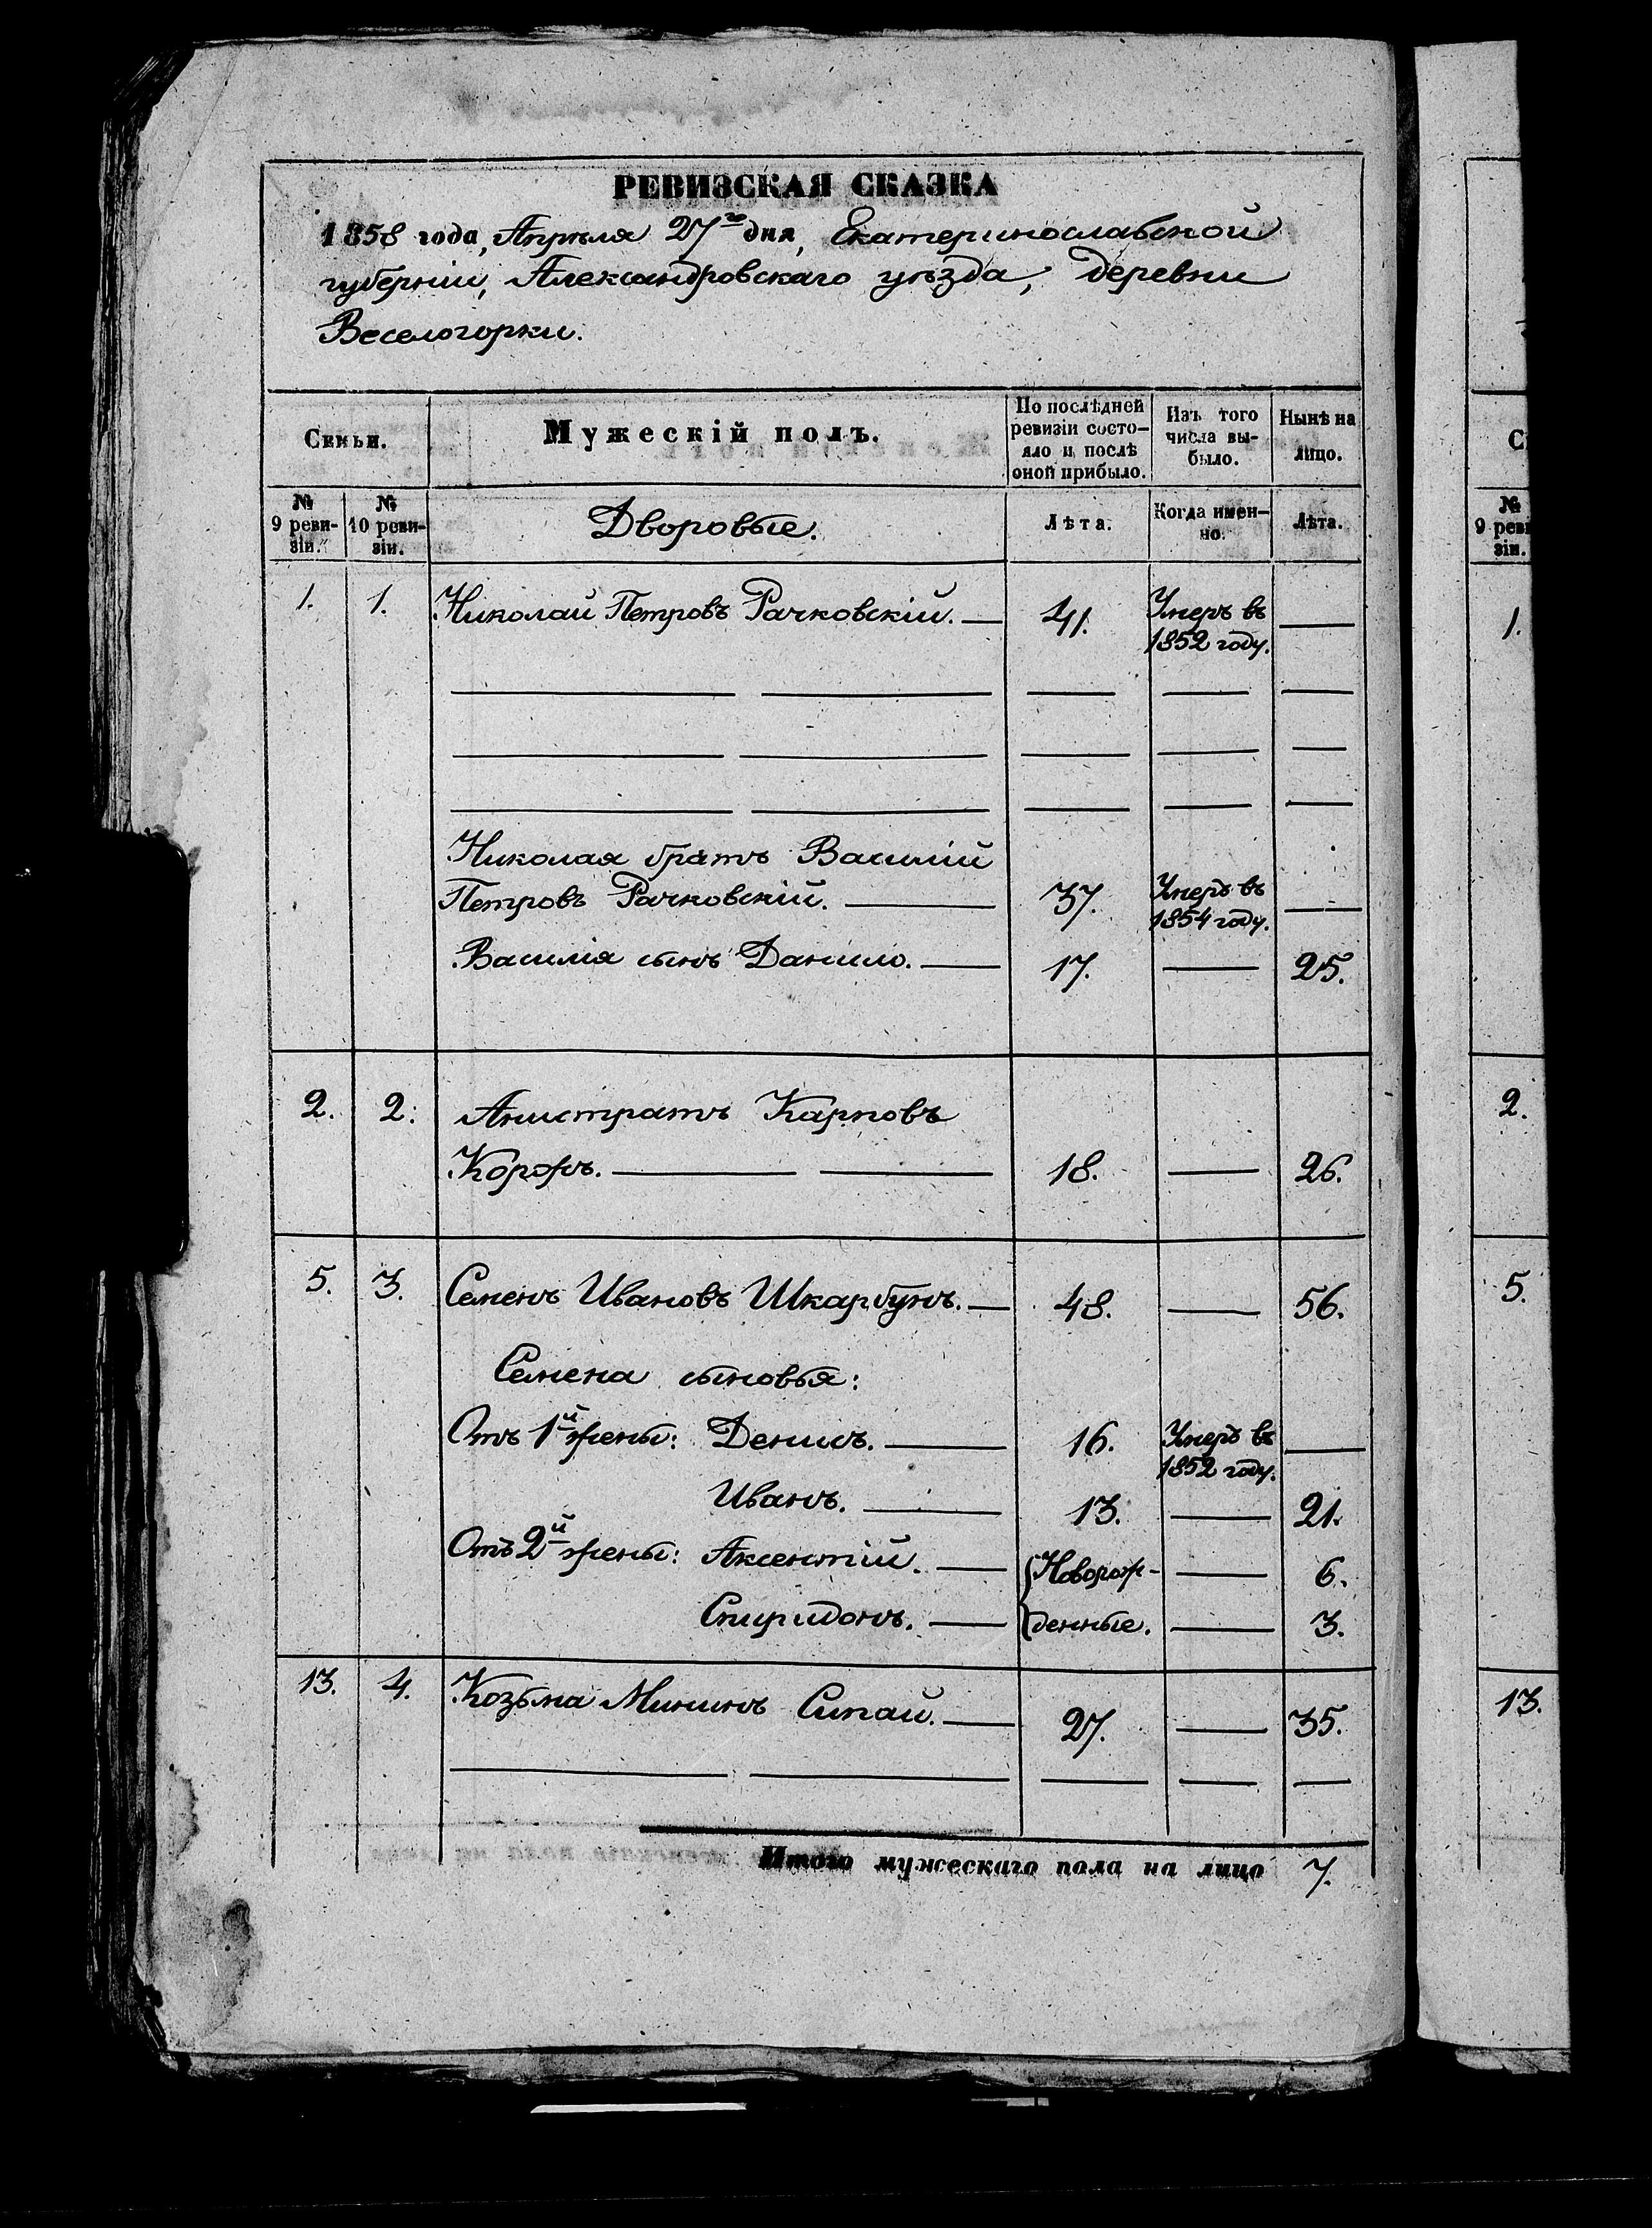 РЕВИЗСКАЯ СКАЗКА
1858 года, Апрѣля 27го дня, Екатеринославской
губерніи, Александровскаго уѣзда, деревни
Веселогорки.
Семьи. Мужескій полъ. По послѣдней ревизіи состо-яло и послѣ оной прибыло. Изъ того числа вы-было. Нынѣ на лицо.
№ 9 реви-зіи. № 10 реви-зіи. Дворовые. Лѣта. Когда имен-но. Лѣта.
1. 1. Николай Петровъ Рачковскій. — 41. Умеръ въ 1852 году. —
Николая братъ Василій
Петровъ Рачковскій. — 37. Умеръ въ 1854 году. —
Василія сынъ Данило. — 17. — 25.
2. 2. Анистратъ Карповъ
Коржъ. — 18. — 26.
5. 3. Семенъ Ивановъ Шкарбунъ. — 48. — 56.
Семена сыновья:
Отъ 1й жены: Денисъ. — 16. Умеръ въ 1852 году. —
Иванъ. — 13. — 21.
Отъ 2й жены: Аксентій. — Новорож- — 6.
Спиридонъ. — денные. — 3.
13. 4. Козьма Мининъ Сипай. — 27. — 35.
Итого мужескаго пола на лицо 7.
С
№
9 реви
зіи.
1.
2.
5.
13.